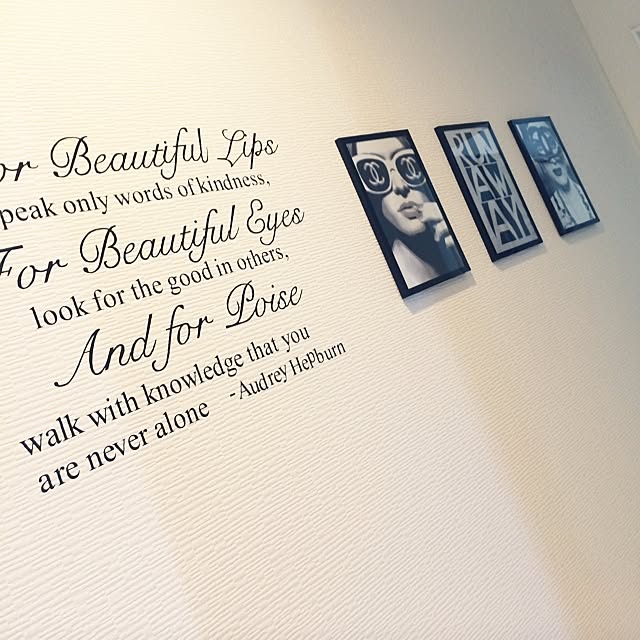 or Beautiful Lips
peak only words of kindness,
For Beautiful Eyes
look for the good in others,
And for Poise
walk with knowledge that you
are never alone
-Audrey Hepburn
RUN
AWAY